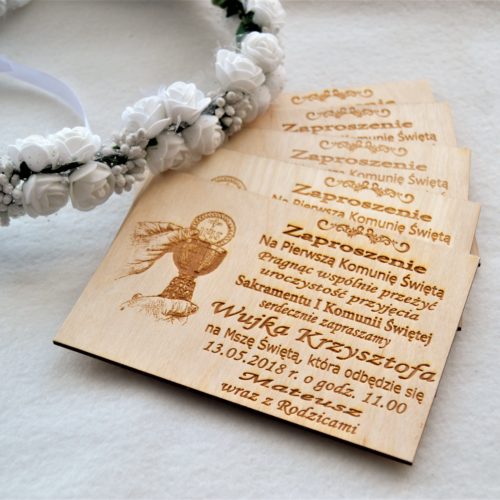 Zaproszenie
Na Pierwszą Komunię Świętą
Zaproszenie
Na Pierwszą Komunię Świętą
Zaproszenie
Na Pierwszą Komunię Świętą
Zaproszenie
Na Pierwszą Komunię Świętą
Pragnąc wspólnie przeżyć
uroczystość przyjęcia
Sakramentu I Komunii Świętej
serdecznie zapraszamy
Wujka Krzysztofa
na Mszę Świętą, która odbędzie się
13.05.2018 r. o godz. 11.00
Mateusz
wraz z Rodzicami